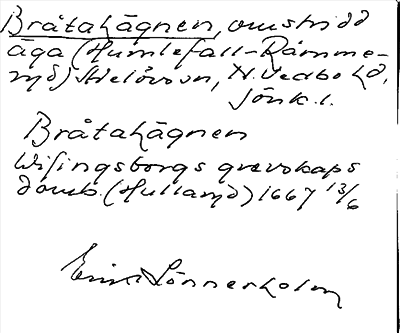 Bråtahägnen, omstridd
äga (Humlefall-Råmme-
n), N. Vedbo hd,
Jönk. l.
Bråtahägnen
Wisingsborgs grevskaps
domb. (Hulland) 1667 13/6
Einar Lönnerholm